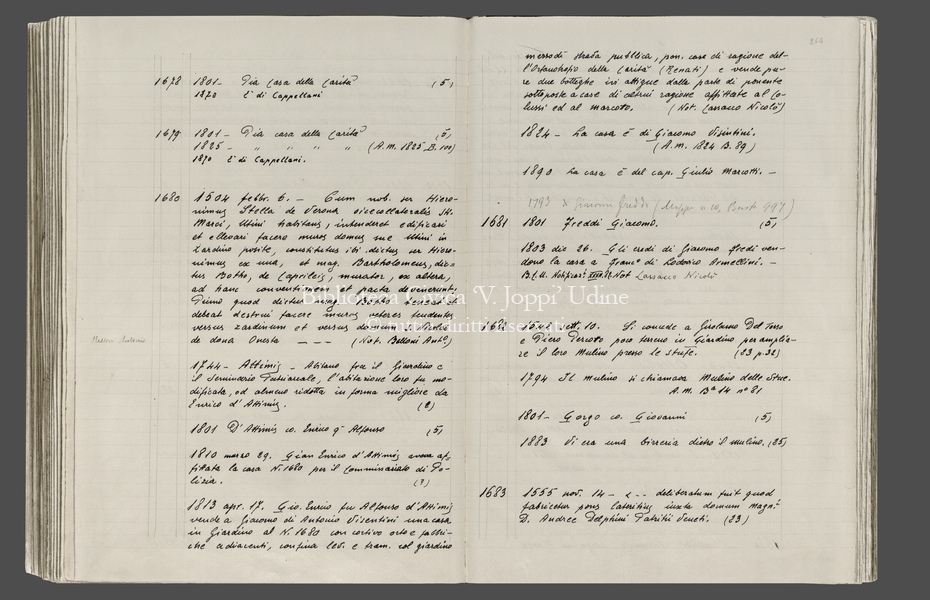 1678 1801 - Pia Casa della Carità (5)
1870 È di Cappellani
1679 1801 - Pia casa della Carità (5)
1825 - " " " " (A.m. 1825, B. 100)
1870 È di Cappellani.
1680 1504 febbr. 6. - Cum nob. ser Hiero-
nimus Stella de Verona vicecollateralis SM.
Marci, Utini habitans, intenderet edificari
et ellevari facere muros domus sue Utini in
zardino posite, constitutus ibi dictus ser Hiero-
nimus ex una, et mag. Bartholomeus, dic-
tus Botho, de Caprileis, murator, ex altera,
ad hanc conventionem et pacta devenerunt:
Primo quod dictus mag. Botho teneat et
debeat destrui facere muros veteres tendentes
versus zardinum et versus domum
de dona Onesta - - - (Not. Belloni Antº)
Belloni Antonio
1744 - Attimis - Abitano fra il Giardino e
il Seminario Patriarcale, l'abitazione loro fu mo-
dificata, ed almeno ridotta in forma migliore da
Enrico d'Attimis. (2)
1801 D'Attimis co. Enrico qm Alfonso (5)
1810 marzo 29. Gian Enrico d'Attimis aveva af-
fittata la casa N. 1680 per il Comminariato di Po-
lizia.
1813 apr. 17. Gio. Enrico fu Alfonso d'Attimis
vende a Giacomo di Antonio Visentini una casa
in Giardino al N. 1680 con cortivo orto e fabbri-
che adiacenti, confina lev. e tram. col giardino
264
merzodì strada pubblica, pon. case di ragione del-
l'Ortanotrofio della Carità (Renati) e vende pu-
re due botteghe ivi attigue dalla parte di ponente
sottoposte a case di altrui ragione affittate al Co-
lussi ed al marcoto. (Not. Cassano Nicolò)
1824 - La casa è di Giacomo Visintini.
(A.m. 1824 B. 89)
1890 La casa è del cap. Giulio Marcotti. -
1793 x Giacomo Freddi (Mappe n 10, 997)
1681 1801 Freddi Giacomo. (5)
1803 dic 26. Gli eredi di Giacomo Fredi ven-
dono la casa a Francº di Lodovico Armellini. -
B.C.U. Not Cassano Nicolò
Biblioteca Civica 'V. Joppi' Udine
© tutti i diritti riservati
1682 sett. 10. Si concede a Girolamo Del Torso
e Piero Percoto poco terreno in Giardino per amplia-
re il loro Mulino presso le stufe. (23 p. 32)
1794 Il mulino si chiamava Mulino delle Stue.
A.M. Bª 14 nº 81
1801 - Gorgo co. Giovanni (5)
1883 Vi era una birreria dietro il mulino. (25)
1683 1555 nov. 14 - < - - deliberatum fuit quod
fabricetur pons lateritius iuxta domum Magci
D. Andree Delphini Patritii Veneti. (23)